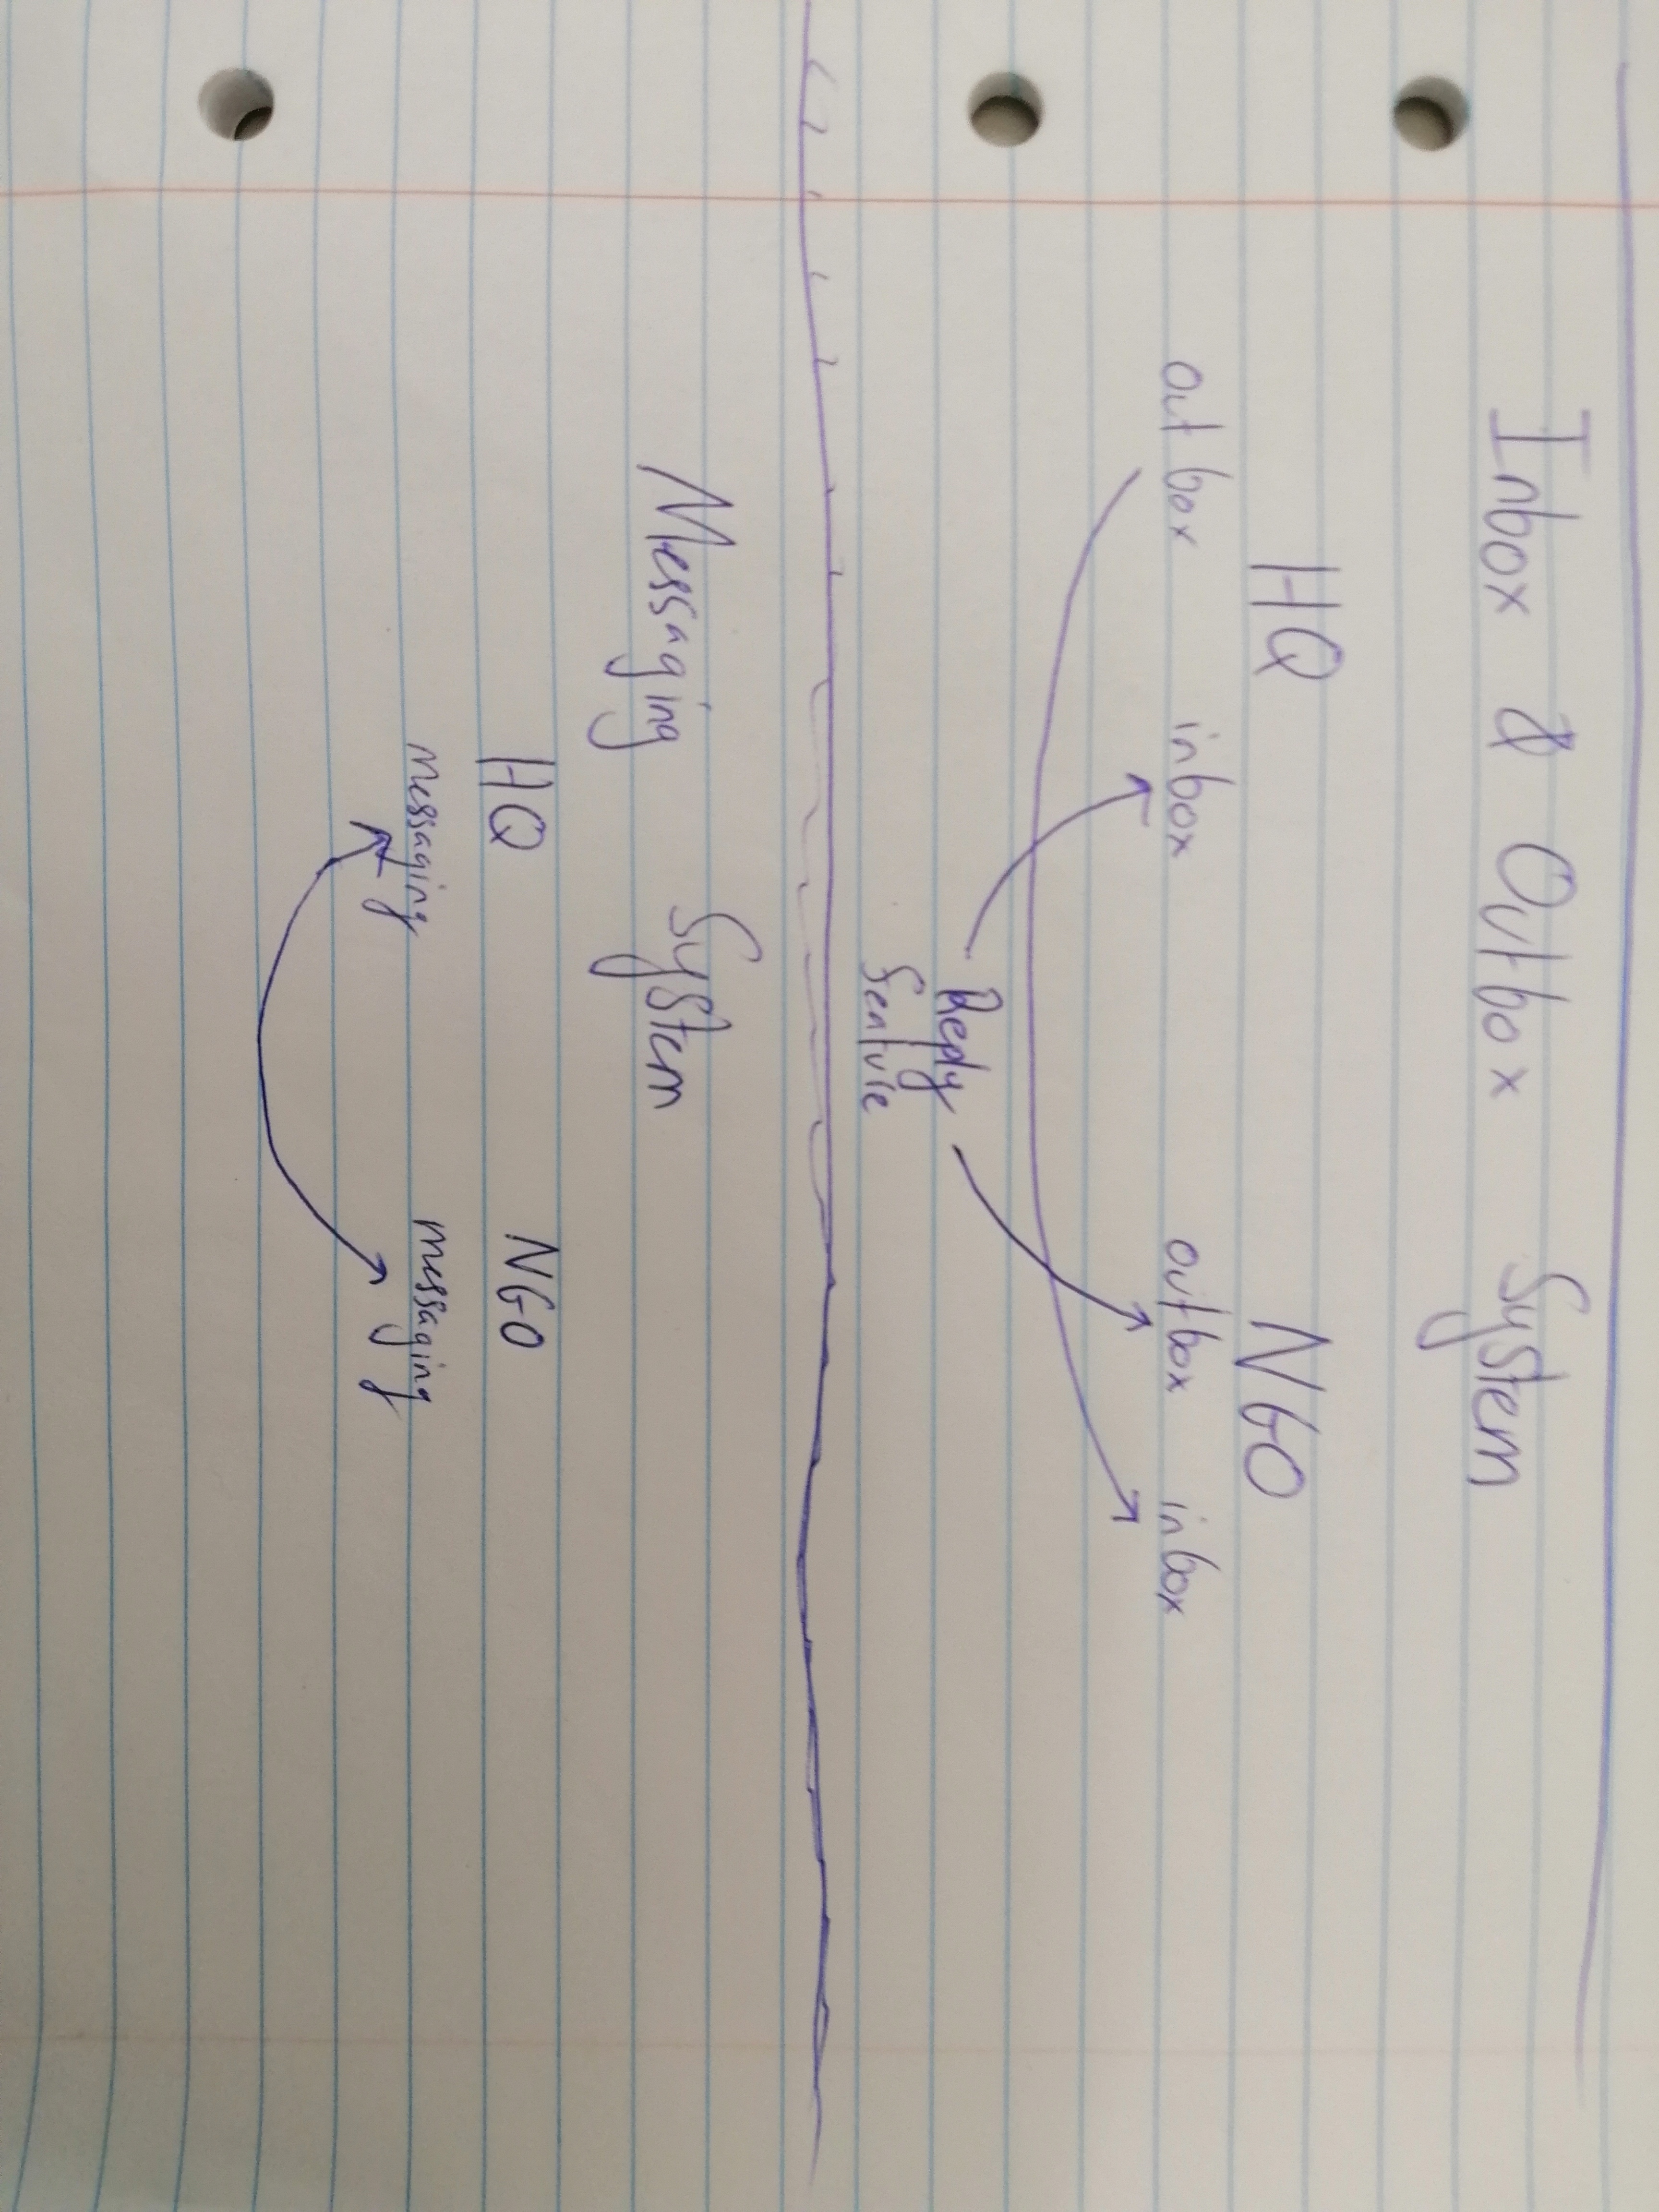 Inbox & Outbox System
HQ NGO
outbox inbox outbox inbox
Reply
Featvre
Messaging System
HQ NGO
messaging messaging